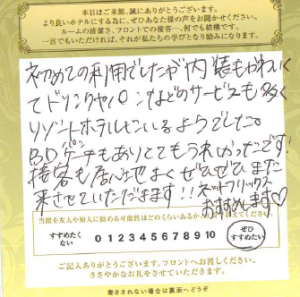 本日はご来館、誠にありがとうございます。
より良いホテルにする為に、ぜひあなた様の声をお聞かせください。
ルームの清潔さ、フロントでの接客…、何でも結構です。
一言でもいただければ、それが私たちの学びとなり励みになります。
初めての利用でしたが内装もかわいく
てドリンクやパンなどのサービスも多く
リゾートホテルにいるようでした。
BDケーキもありとてもうれしかったです!
接客も居心地もよくぜひぜひまた
来させていただきます!!ネットフリックス
おすすめします♡
当館を友人や知人に勧める可能性はどのくらいあるか、
すすめたくない
0 1 2 3 4 5 6 7 8 9 10
ぜひすすめたい
ご記入ありがとうございます。フロントへお渡しください。
ささやかなお礼をさせていただきます。
書ききれない場合は裏面へどうぞ